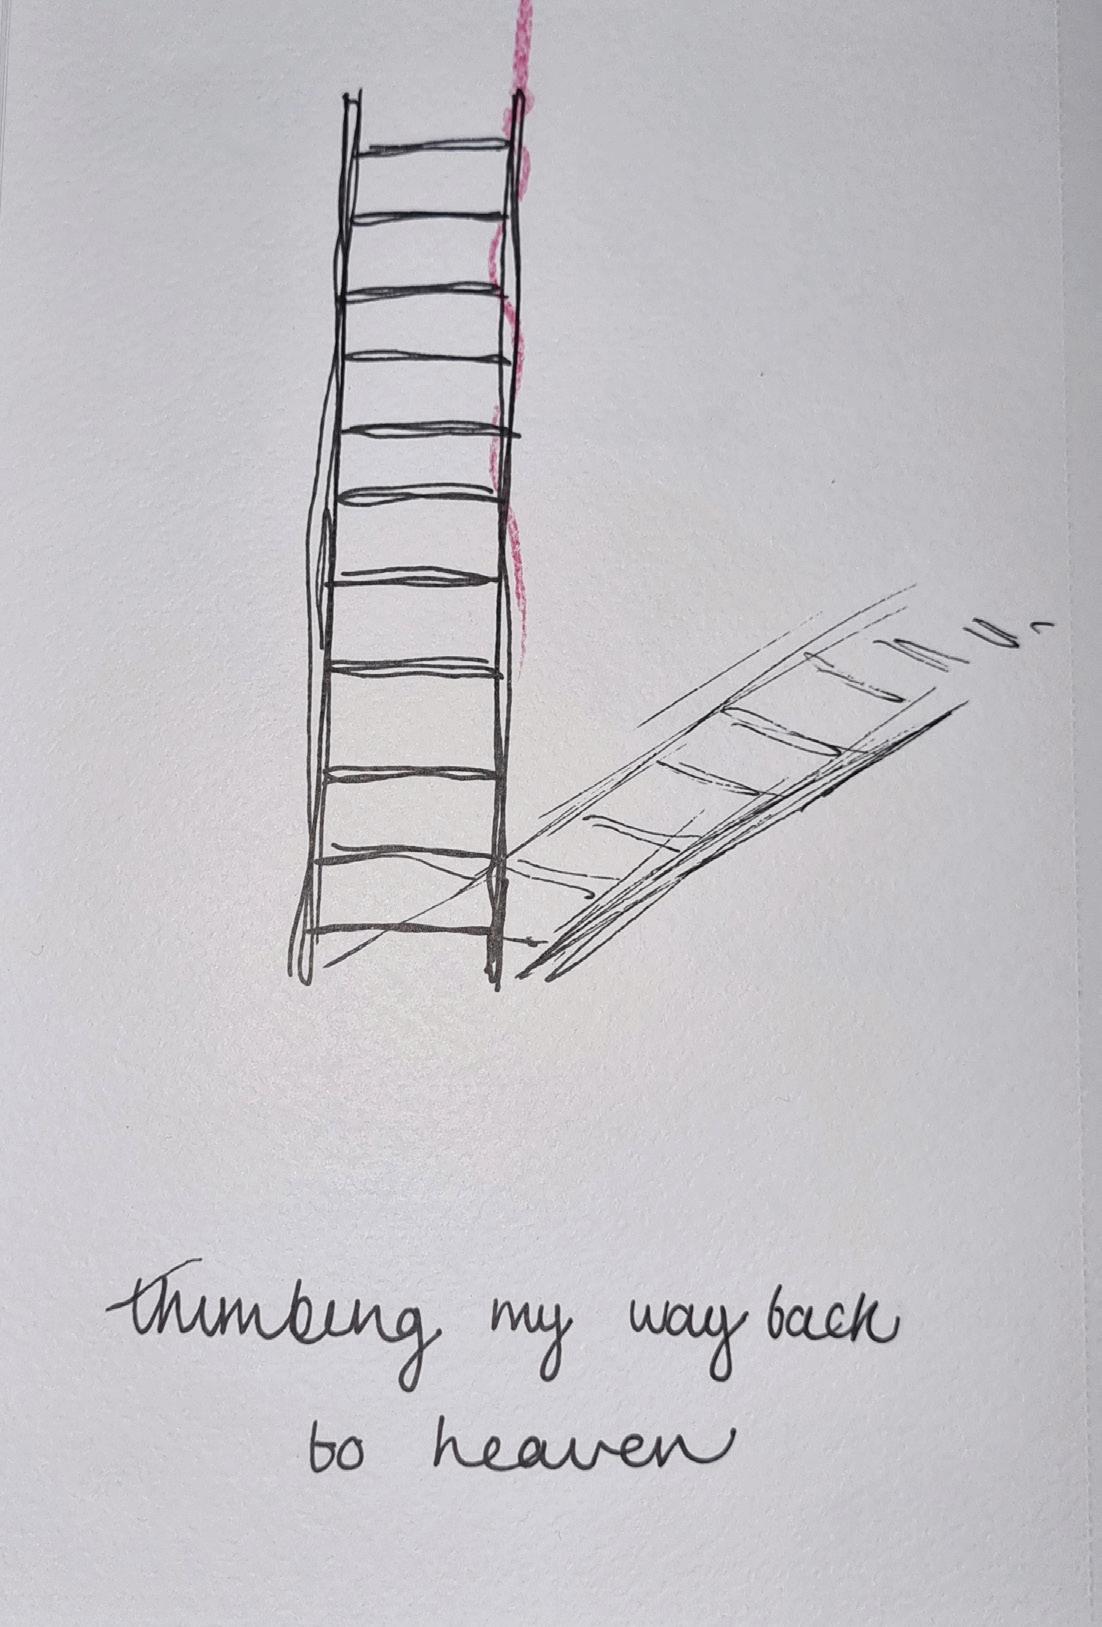 thumbing my way back
to heaven